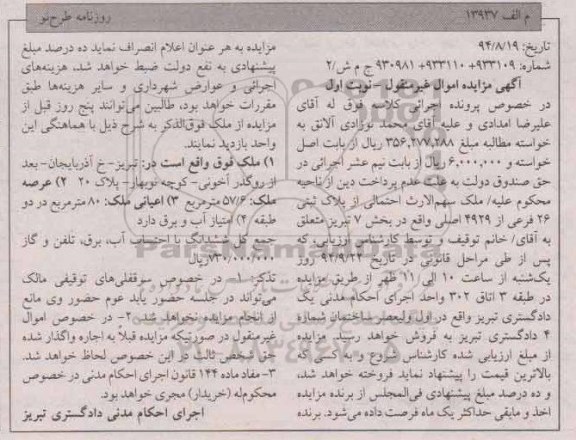 م الف ۱۳۹۳۷
روزنامه طرح‌نو
تاریخ: ۹۴/۸/۱۹
شماره: ۹۳۳۱۰۹+ ۹۳۳۱۱۰+ ۹۳۰۹۸۱ ج م ش/۲
آگهی مزایده اموال غیرمنقول - نوبت اول
در خصوص پرونده اجرائی کلاسه فوق له آقای
علیرضا امدادی و علیه آقای محمد نوزادی آلانق به
خواسته مطالبه مبلغ ۳۵۶,۲۷۷,۲۸۸ ریال از بابت اصل
خواسته و ۶,۰۰۰,۰۰۰ ریال از بابت نیم عشر اجرائی در
حق صندوق دولت به علت عدم پرداخت دین از ناحیه
محکوم علیه/ ملک سهم‌الارث احتمالی از پلاک ثبتی
۲۶ فرعی از ۴۹۲۹ اصلی واقع در بخش ۷ تبریز متعلق
به آقای/ خانم توقیف و توسط کارشناس ارزیابی، که
پس از طی مراحل قانونی در تاریخ ۹۴/۹/۲۲ روز
یکشنبه از ساعت ۱۰ الی ۱۱ ظهر از طریق مزایده
در طبقه ۳ اتاق ۳۰۲ واحد اجرای احکام مدنی یک
دادگستری تبریز واقع در اول ولیعصر ساختمان شماره
۴ دادگستری تبریز به فروش خواهد رسید. مزایده
از مبلغ ارزیابی شده کارشناس شروع و به کسی که
بالاترین قیمت را پیشنهاد نماید فروخته خواهد شد،
و ده درصد مبلغ پیشنهادی فی‌المجلس از برنده مزایده
اخذ و مابقی حداکثر یک ماه فرصت داده می‌شود. برنده
مزایده به هر عنوان اعلام انصراف نماید ده درصد مبلغ
پیشنهادی به نفع دولت ضبط خواهد شد، هزینه‌های
اجرائی و عوارض شهرداری و سایر هزینه‌ها طبق
مقررات خواهد بود، طالبین می‌توانند پنج روز قبل از
مزایده از ملک فوق‌الذکر به شرح ذیل با هماهنگی این
واحد بازدید نمایند.
۱) ملک فوق واقع است در: تبریز- خ آذربایجان- بعد
از روگذر آخونی- کوچه نوبهار- پلاک ۲۰ ۲) عرصه
ملک: ۵۷/۶ مترمربع ۳) اعیانی ملک: ۸۰ مترمربع در دو
طبقه ۴) امتیاز آب و برق دارد
جمع کل ششدانگ با احتساب آب، برق، تلفن و گاز
۷۳۰/۰۰۰/۰۰۰ ریال
تذکر: ۱- در خصوص سرقفلی‌های توقیفی مالک
می‌تواند در جلسه حضور یابد عوم حضور وی مانع
از انجام مزایده نخواهد شد. ۲- در خصوص اموال
غیرمنقول در صورتیکه مزایده قبلاً به اجاره واگذار شده
حق شخص ثالث در این خصوص لحاظ خواهد شد.
۳- مفاد ماده ۱۴۴ قانون اجرای احکام مدنی در خصوص
محکوم‌له (خریدار) مجری خواهد بود.
اجرای احکام مدنی دادگستری تبریز
ParsNamadData